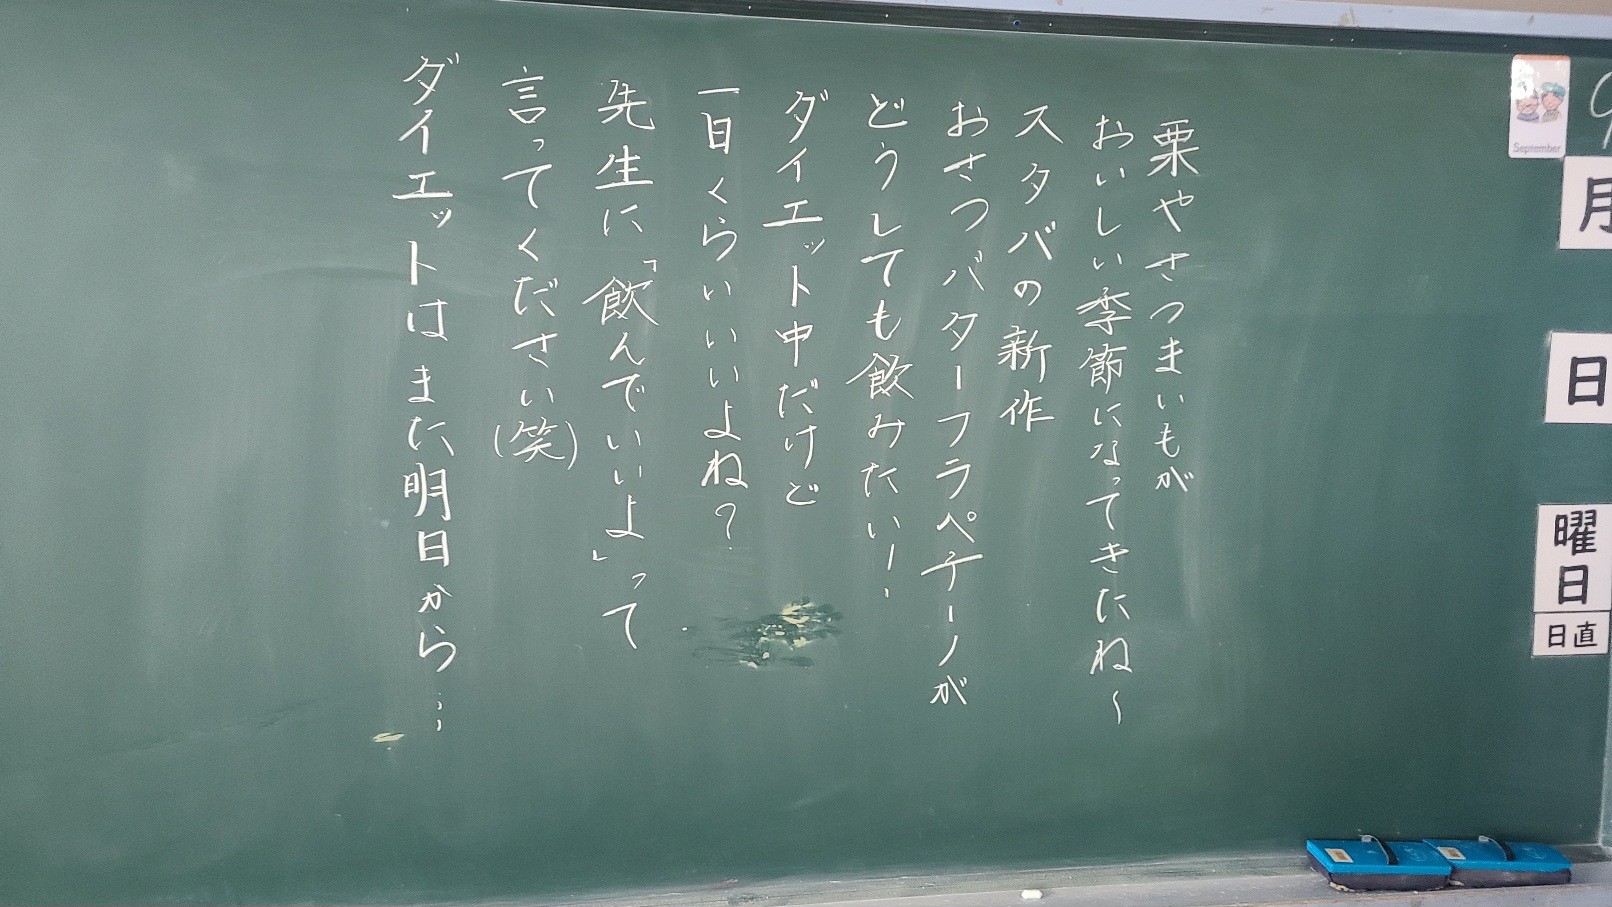 栗やさつまいもが
おいしい季節になってきたね～
スタバの新作
おさつバターフラペチーノが
どうしても飲みたいー!
ダイエット中だけど
一日くらいいいよね?
先生に「飲んでいいよ」って
言ってください(笑)
ダイエットはまた明日から…
September
9
月
日
曜日
日直